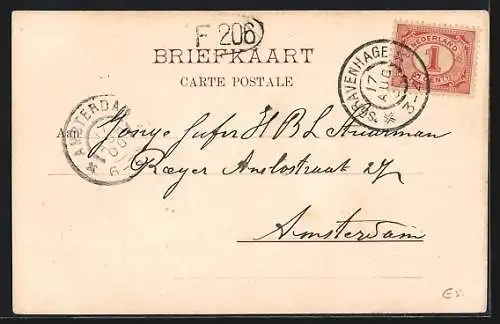 F 206
BRIEFKAART
CARTE POSTALE
NEDERLAND
1
CENT
'S GRAVENHAGE
17
AUG
3-4
AMSTERDAM
6
Aan
Jonge Jufer H B L Stuurman
Roeyer Anslostraat 27
Amsterdam